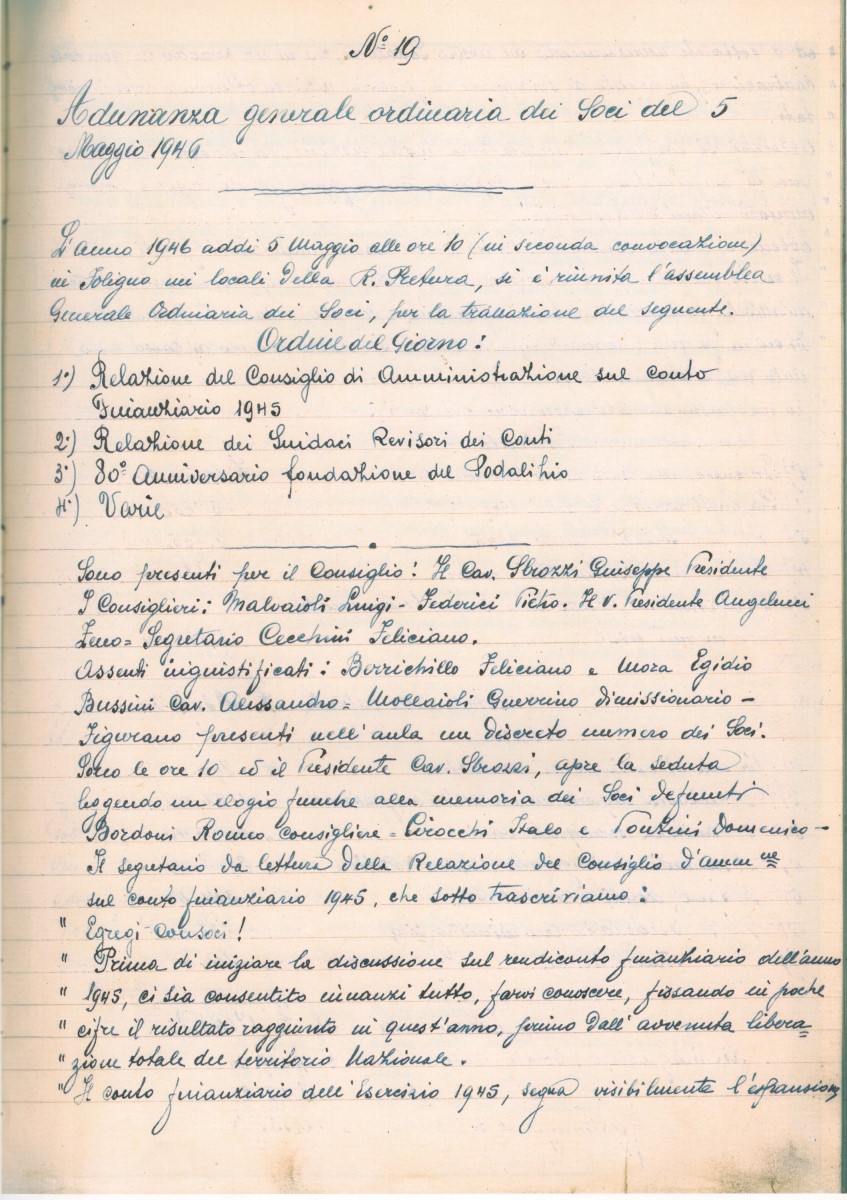 N.º 19
Adunanza generale ordinaria dei Soci del 5
Maggio 1946
L'anno 1946 addì 5 Maggio alle ore 10 (in seconda convocazione)
in Foligno nei locali della R. Pretura, si è riunita l'assemblea
Generale Ordinaria dei Soci, per la trattazione del seguente.
Ordine del Giorno:
1º) Relazione del Consiglio di Amministrazione sul conto
Finanziario 1945
2º) Relazione dei Sindaci Revisori dei Conti
3º) 80º Anniversario fondazione del Sodalizio
4º) Varie
Sono presenti per il Consiglio: Il Cav. Sbrozzi Giuseppe Presidente
I Consiglieri: Malvaioli Luigi - Federici Pietro. Il V. Presidente Angelucci
Zeno = Segretario Cecchini Feliciano.
Assenti ingiustificati: Berrichillo Feliciano e Mora Egidio
Bussini Cav. Alessandro = Mollaioli Guerrino dimissionario -
Figurano presenti nell'aula un discreto numero dei Soci.
Sono le ore 10 ed il Presidente Cav. Sbrozzi, apre la seduta
leggendo un elogio funebre alla memoria dei Soci defunti
Bordoni Romeo consigliere = Cirocchi Italo e Pontini Domenico -
Il segretario da lettura della Relazione del Consiglio d'amm.ne
sul conto finanziario 1945, che sotto trascriviamo:
" Egregi consoci!
" Prima di iniziare la discussione sul rendiconto finanziario dell'anno
" 1945, ci sia consentito innanzi tutto, farvi conoscere, fissando in poche
" cifre il risultato raggiunto in quest'anno, primo dall'avvenuta libera=
" zione totale del territorio Nazionale.
" Il conto finanziario dell'Esercizio 1945, segna visibilmente l'espansione